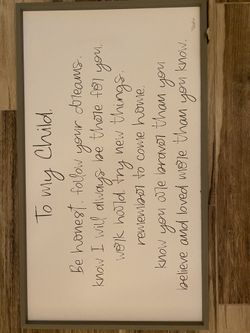 To my Child.
Be honest. follow your dreams.
know I will always be there for you.
work hard. try new things.
remember to come home.
know you are braver than you
believe and loved more than you know.